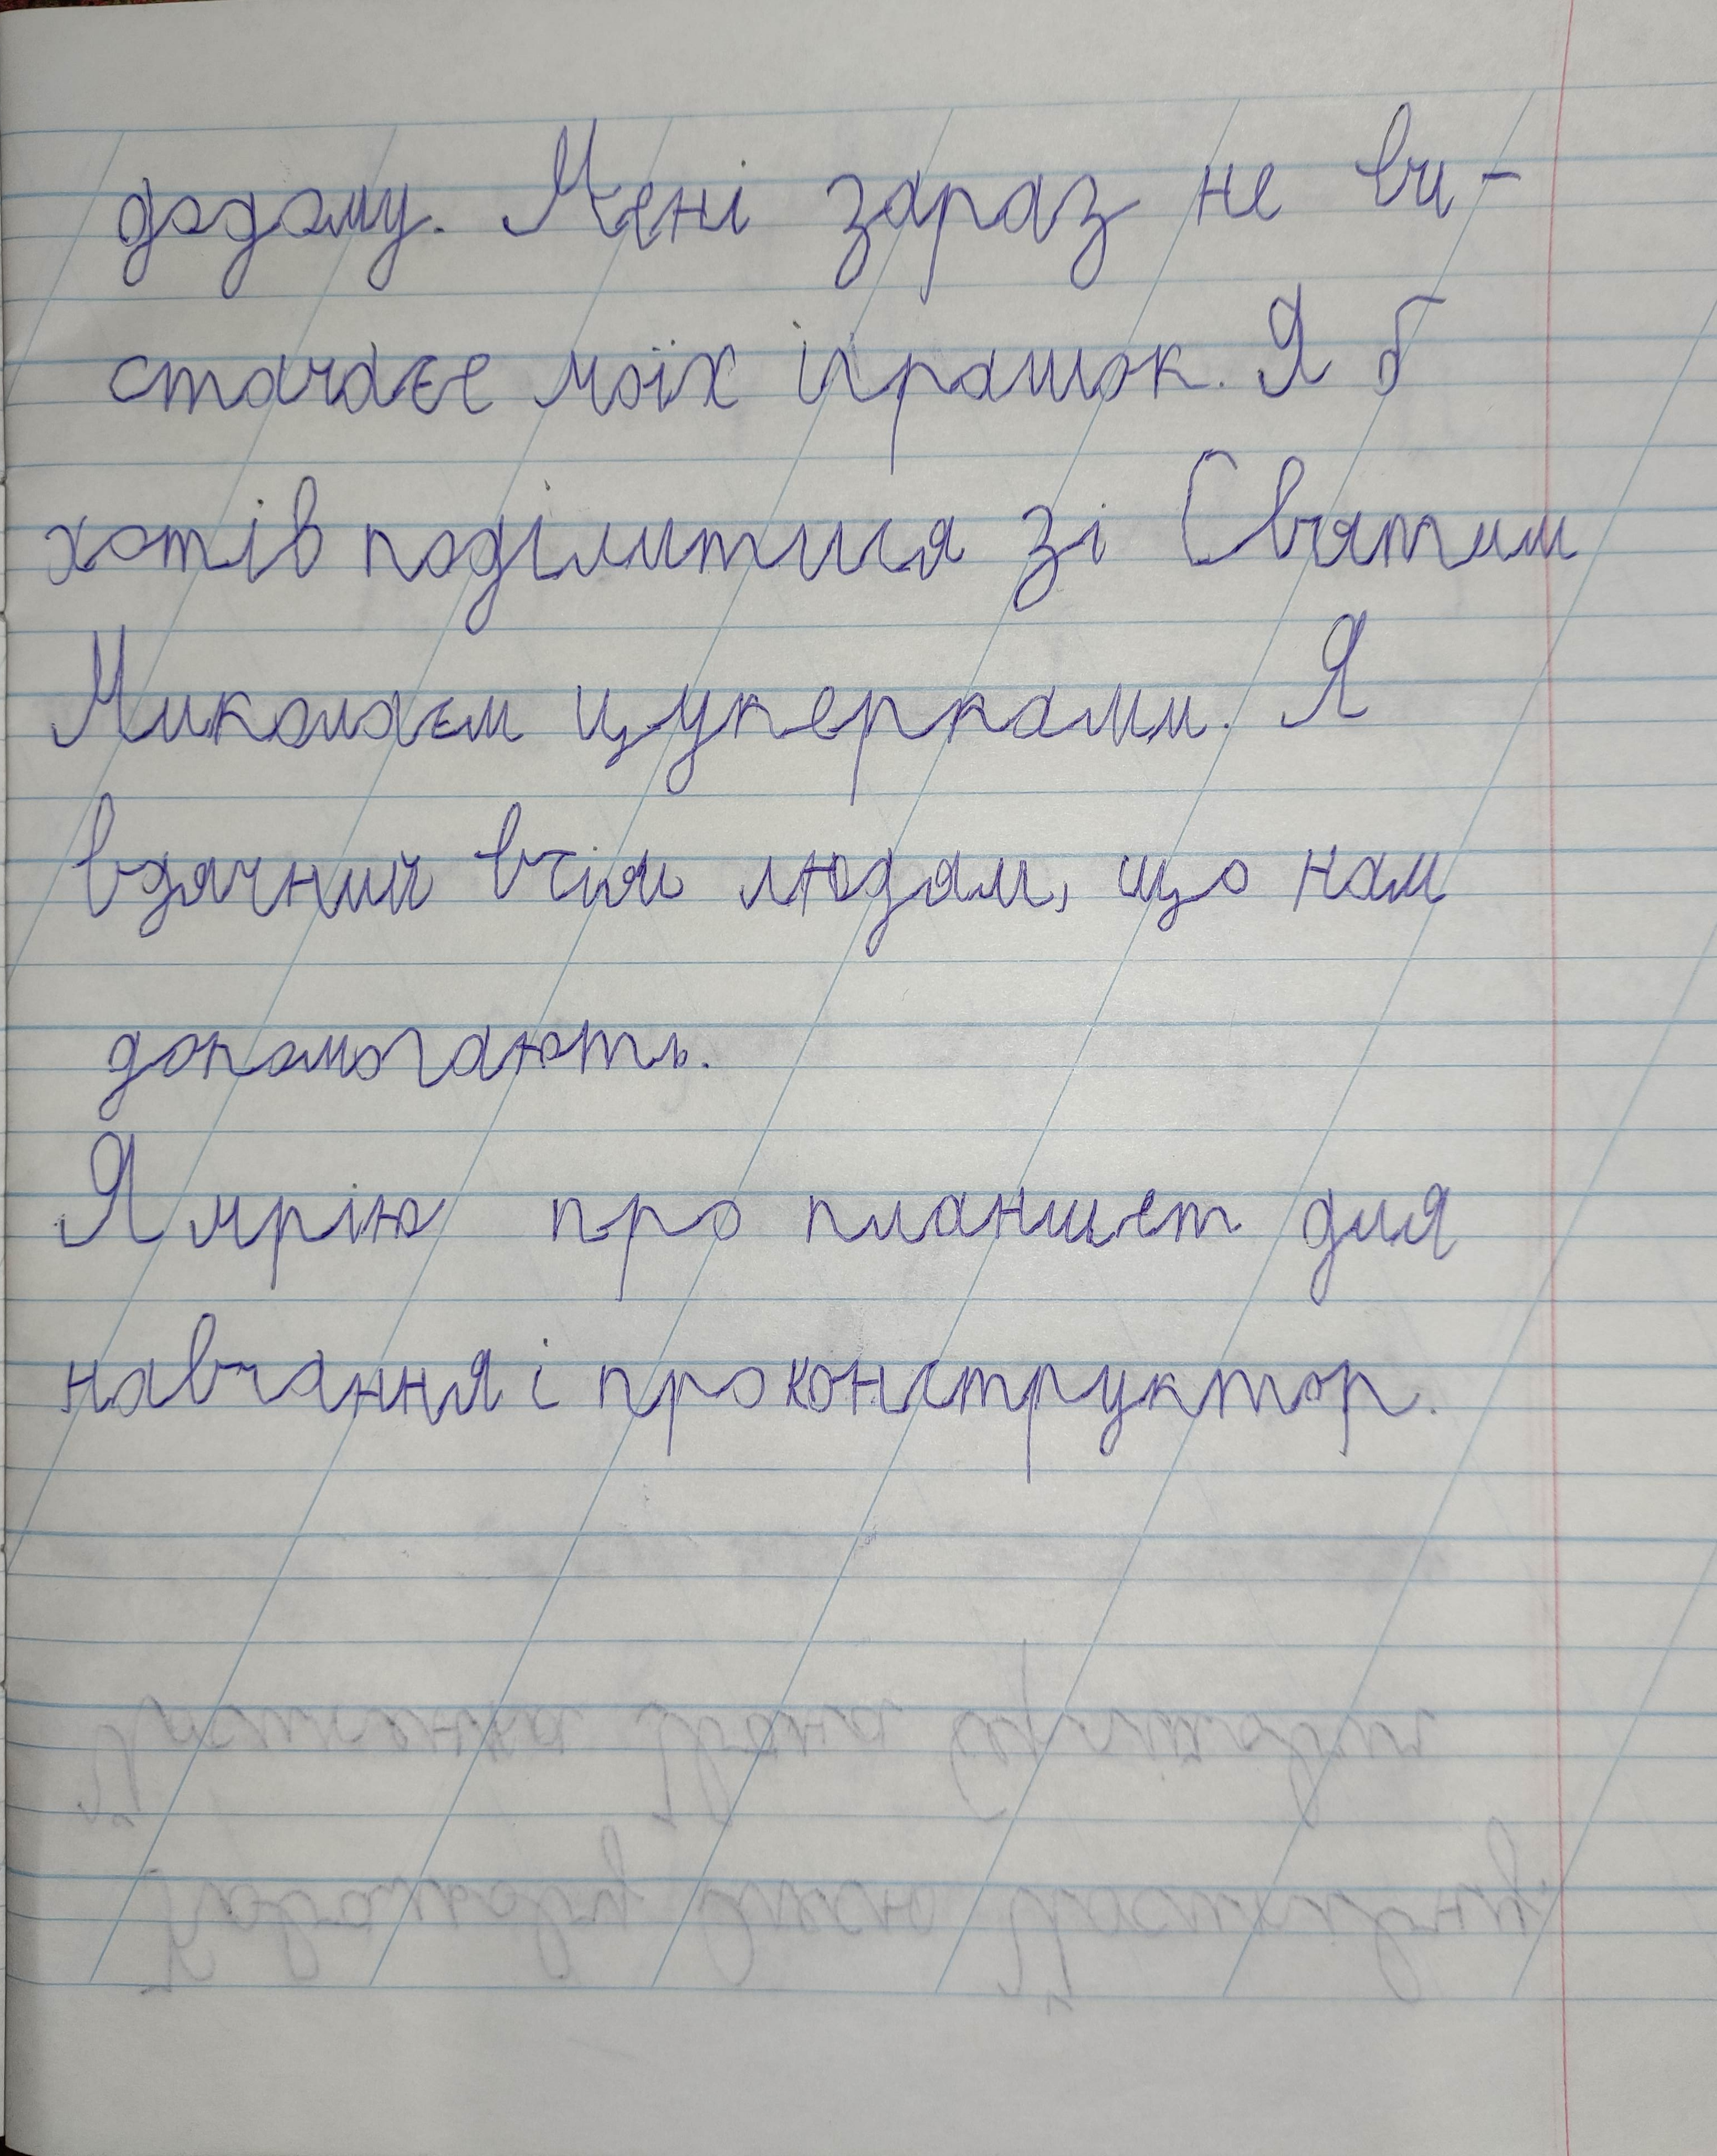 додому. Мені зараз не ви-
стачає моїх іграшок. Я б
хотів поділитися зі Святим
Миколаєм цукерками. Я
вдячний всім людям, що нам
допомогають.
Я мрію про планшет для
навчання і про конструктор.